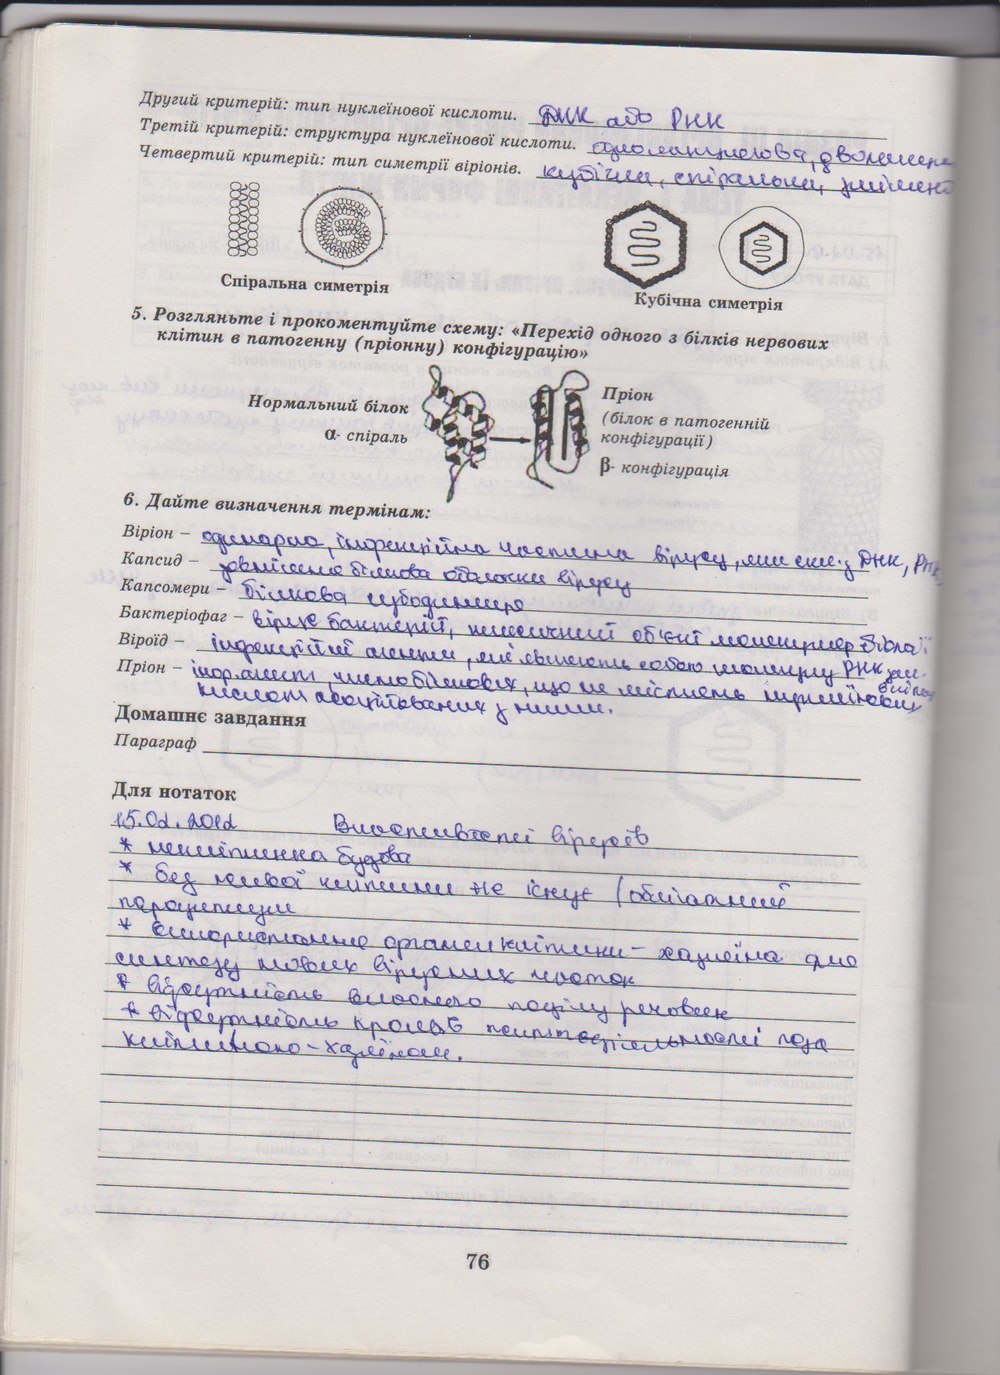 Другий критерій: тип нуклеїнової кислоти. ДНК або РНК
Третій критерій: структура нуклеїнової кислоти. одноланцюгова, дволанцюг
Четвертий критерій: тип симетрії віріонів. кубічна, спіральна, змішана
Спіральна симетрія
Кубічна симетрія
5. Розгляньте і прокоментуйте схему: «Перехід одного з білків нервових
клітин в патогенну (пріонну) конфігурацію»
Нормальний білок
α- спіраль
Пріон
(білок в патогенній
конфігурації)
β- конфігурація
6. Дайте визначення термінам:
Віріон – одинарна, інфекційна частина вірусу, яка скл. з ДНК, РНК
Капсид – зовнішня білкова оболонка вірусу
Капсомери – білкова субодиниця
Бактеріофаг – вірус бактерій, класичний об'єкт молекуляр біології
Віроїд – інфекційні агенти, які являють собою молекулу РНК
Пріон – інф. агент, чисто білкових, що не містить нуклеїнових
кислот асоційованих з ними.
Домашнє завдання
Параграф
Для нотаток
15.02.2012 Властивості вірусів
* неклітинна будова
* без живої клітини не існує (облігатний
паразитизм
* використання органел клітини – хазяїна для
синтезу нових вірусних часток
* відсутність власного поділу речовин
* відсутність проявів життєдіяльності поза
клітиною-хазяїном.
76